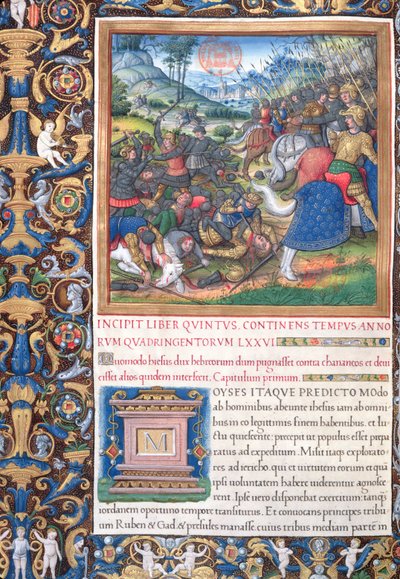 INCIPIT LIBER QVINTVS. CONTINENS TEMPVS ANNO
RVM QVADRINGENTORVM LXXVI
Quomodo hiesus dux hebreorum dum pugnasset contra chananeos et deui
cisset alios quidem interfecit. Capitulum primum.
M
OYSES ITAQVE PREDICTO MOdo
ab hominibus abeunte ihesus iam ab omni
bus in eo legitimis finem habentibus. et lu
ctu quiescente: precepit ut populus esset pre
paratus ad expeditum. Misit itaq; explorato
res. ad jericho. qui et uirtutem eorum et quā
ipsi uoluntatem habere uiderentur agnosce
rent. Ipse uero disponebat exercitum: tanq;
iordanem oportuno tempore transiturus. Et conuocans principes trib
um Ruben & Gad. & presules manasse. cuius tribus mediam parte in